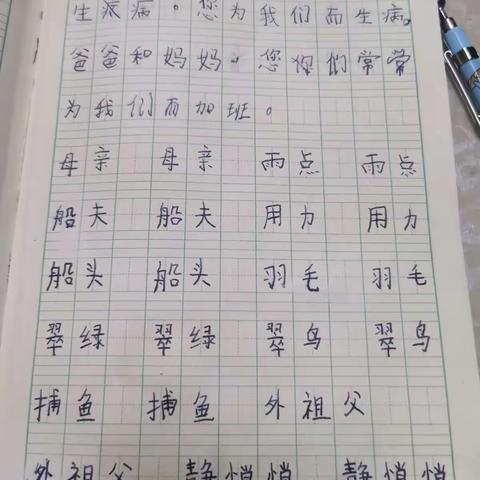 生派病。您为我们而生病。
爸爸和妈妈。您你们常常
为我们而加班。
母亲 母亲 雨点 雨点
船夫 船夫 用力 用力
船头 船头 羽毛 羽毛
翠绿 翠绿 翠鸟 翠鸟
捕鱼 捕鱼 外祖父
外祖父 静悄悄 静悄悄